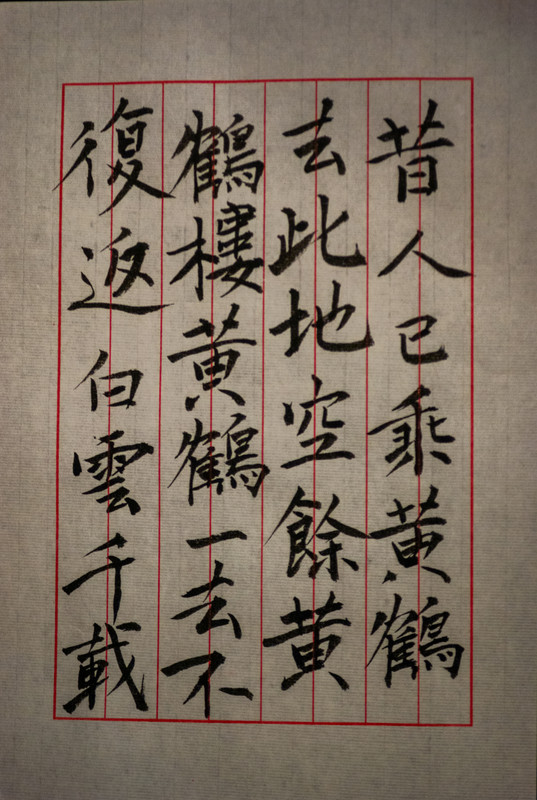 昔人已乘黃鶴
去此地空餘黃
鶴樓黃鶴一去不
復返白雲千載